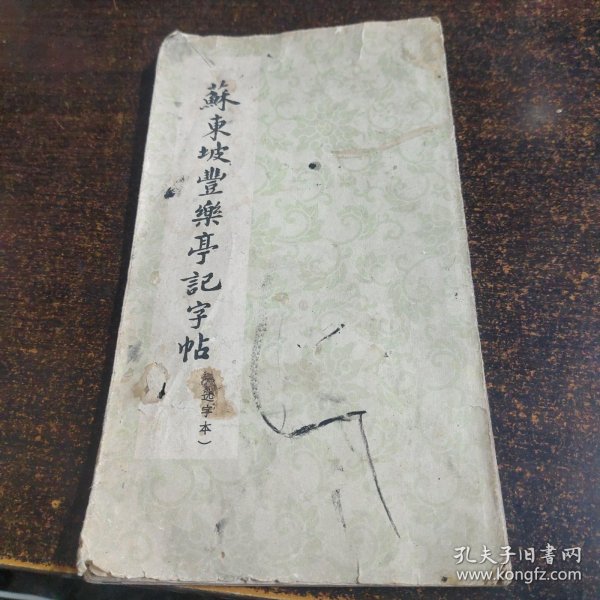 蘇東坡豐樂亭記字帖
选字本）
孔夫子旧书网
www.kongfz.com